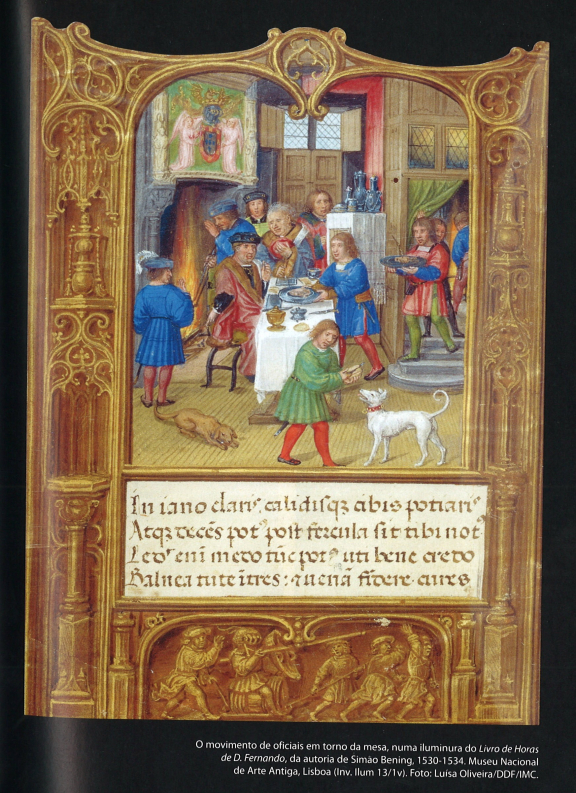 In iano claris calidisqz cibis potiaris
Atqz decēs pot⁹ post fercula sit tibi not⁹
Ledit enī medo tūc pot⁹ uti bene credo
Balnea tute ītres: et uenā fīdere cures
O movimento de oficiais em torno da mesa, numa iluminura do Livro de Horas
de D. Fernando, da autoria de Simão Bening, 1530-1534. Museu Nacional
de Arte Antiga, Lisboa (Inv. Ilum 13/1v). Foto: Luísa Oliveira/DDF/IMC.